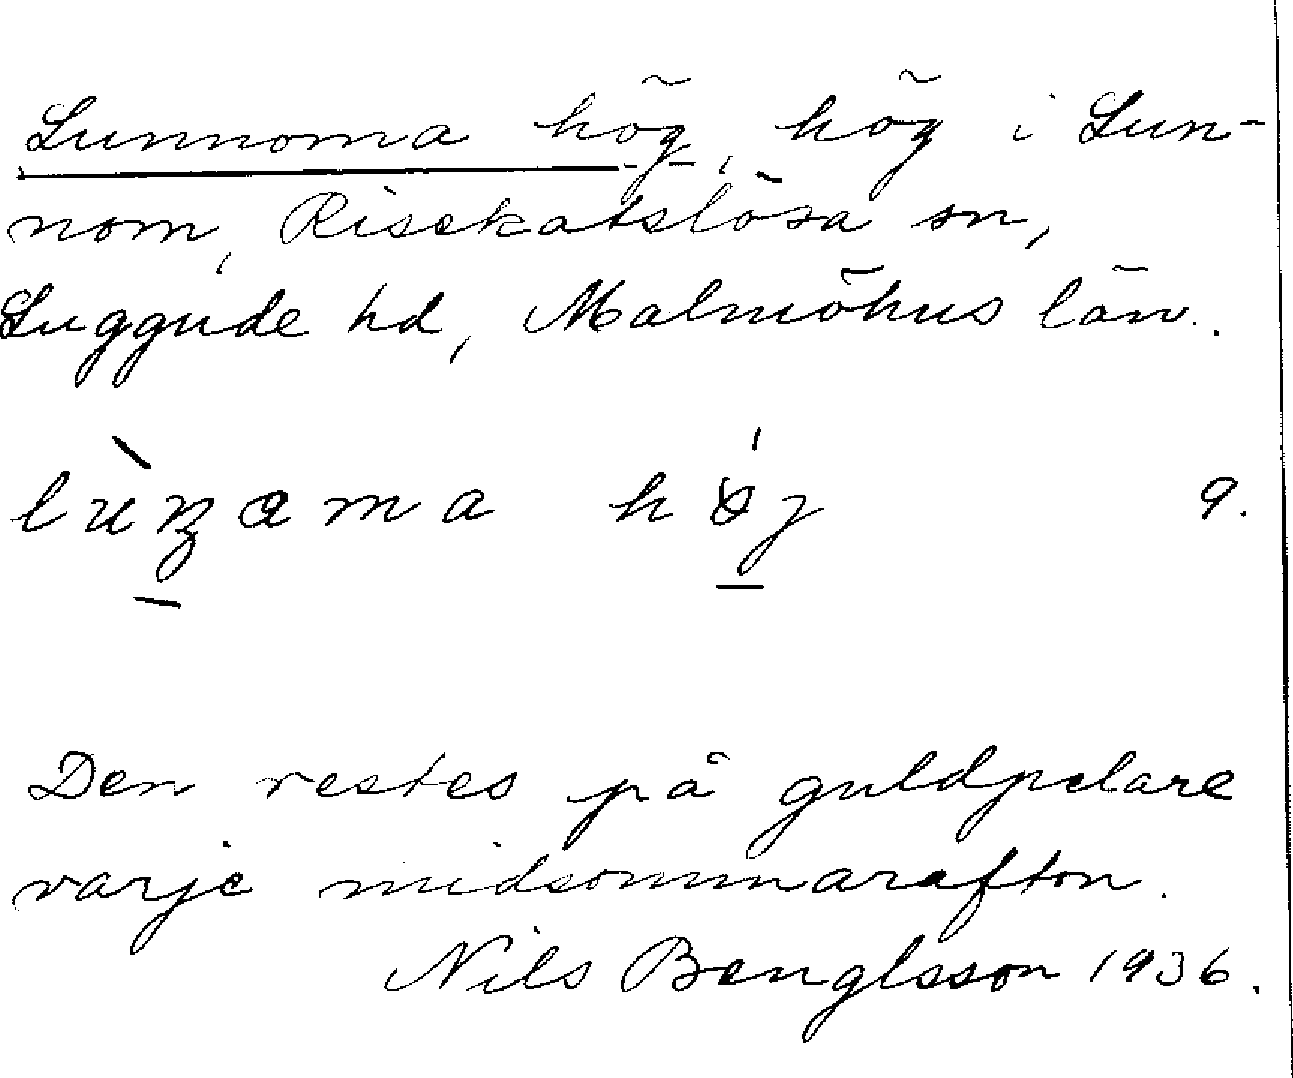 Lunnoma hög, hög i Lun-
nom, Risekatslösa sn,
Luggude hd, Malmöhus län.
9.
Den restes på guldpelare
varje midsommarafton.
Nils Bengtsson 1936.